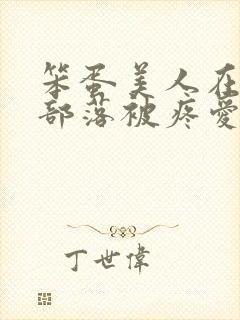 笨蛋美人在
部落被疼爱
丁世偉